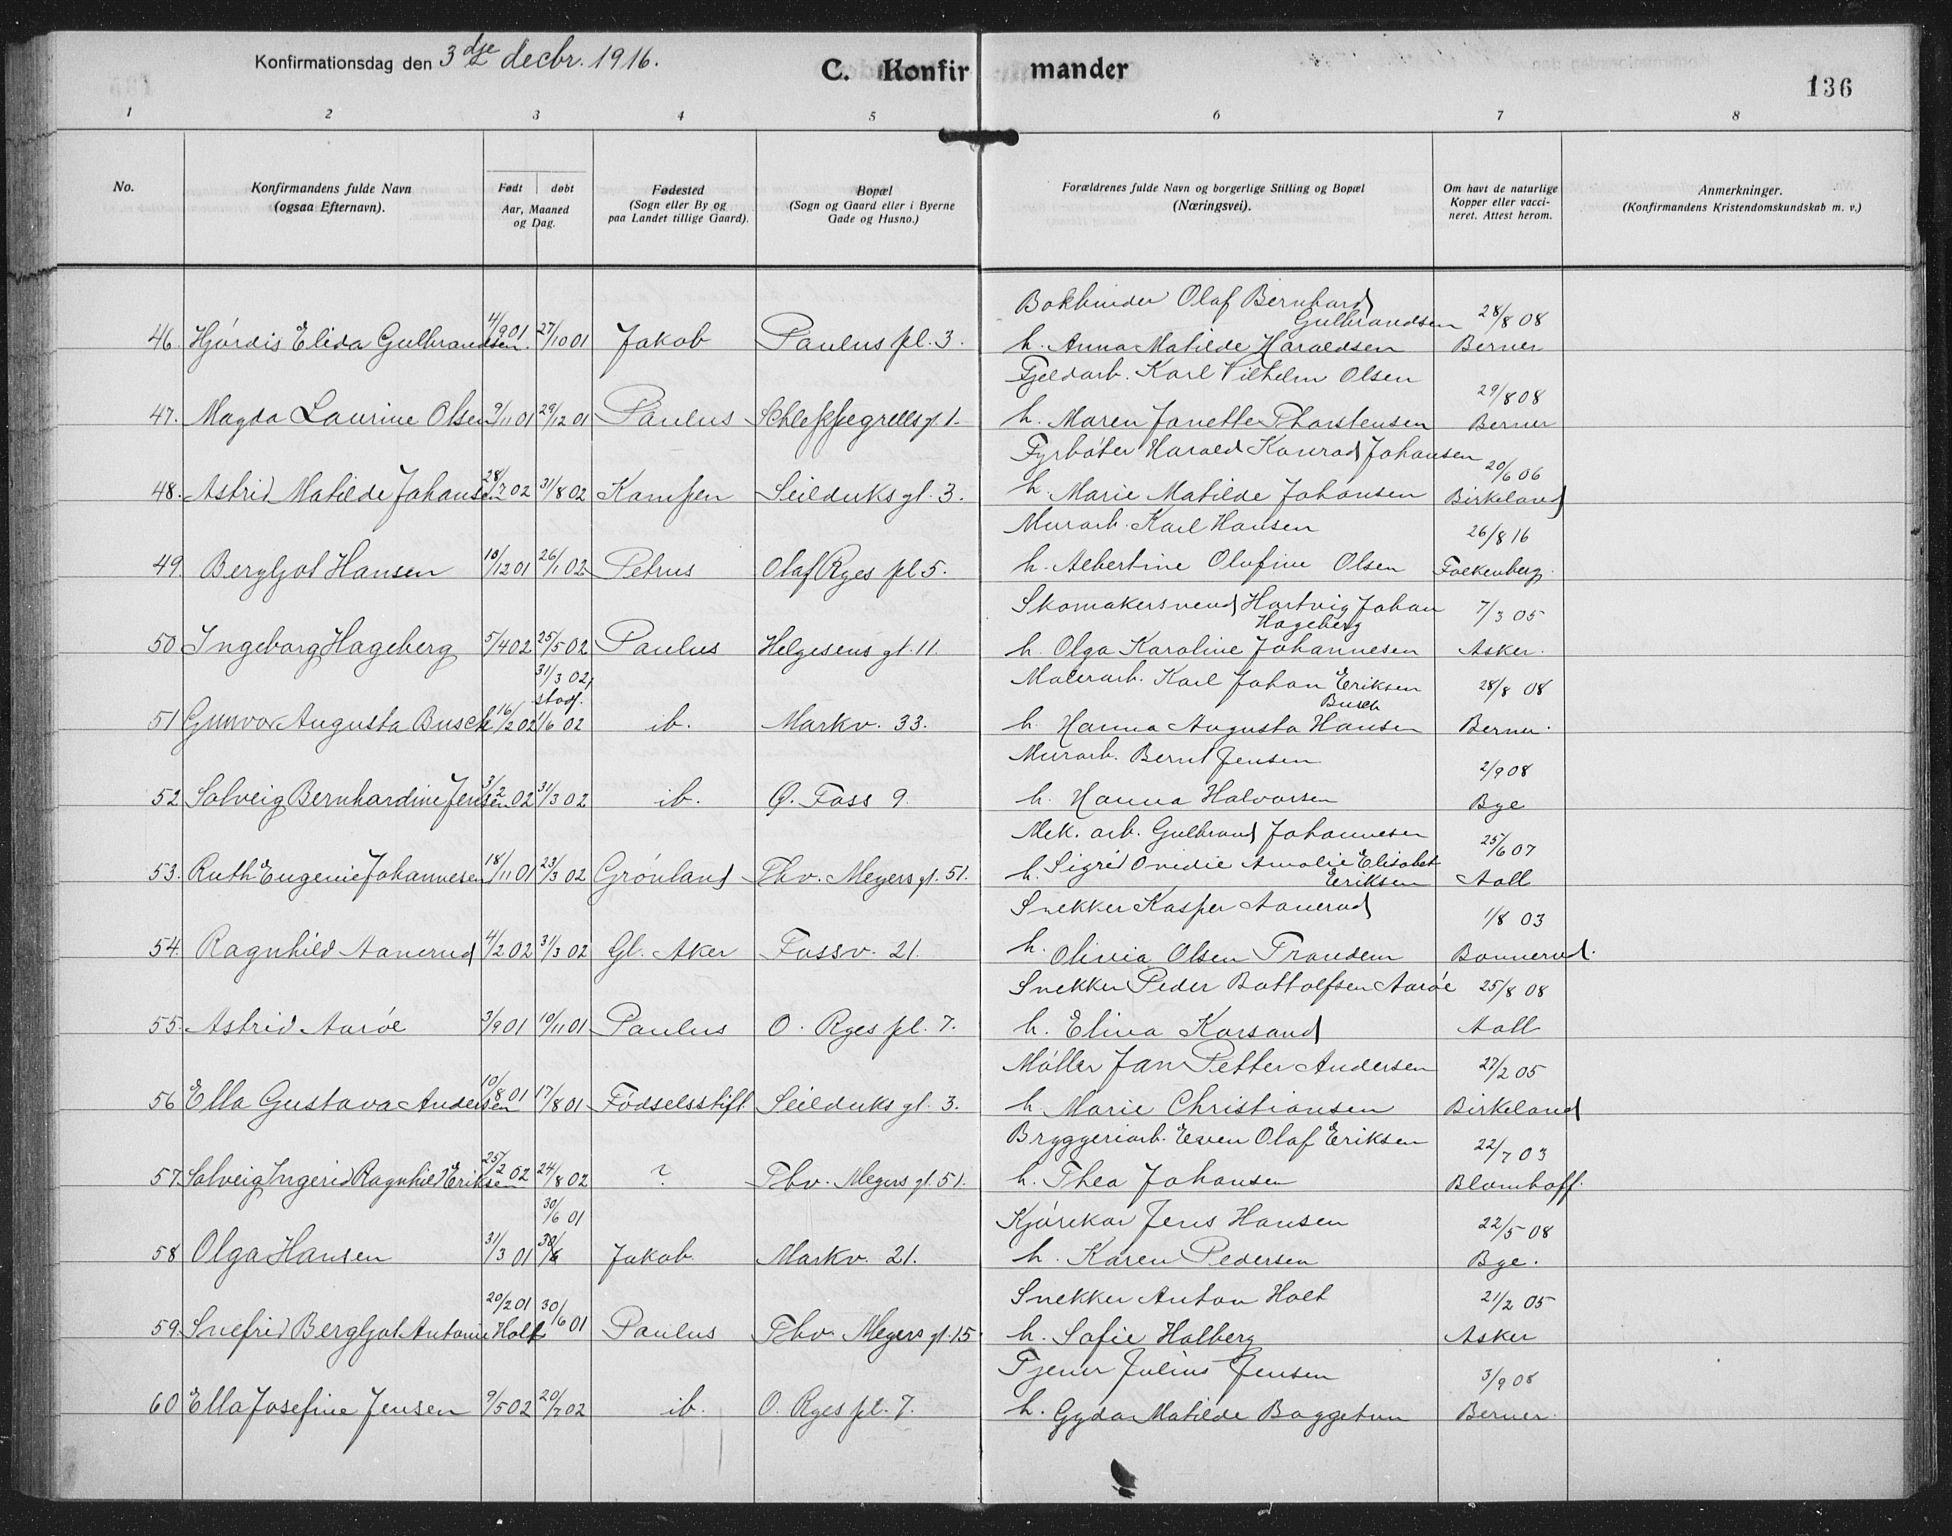 Konfirmationsdag den 3dje decbr. 1916.
C. Konfirmander
136
1 2 3 4 5 6 7 8
No.
Konfirmandens fulde Navn
(ogsaa Efternavn).
Født | døbt
Aar, Maaned
og Dag.
Fødested
(Sogn eller By og
paa Landet tillige Gaard).
Bopæl
(Sogn og Gaard eller i Byerne
Gade og Husno.)
Forældrenes fulde Navn og borgerlige Stilling og Bopæl
(Næringsvei).
Om havt de naturlige
Kopper eller vacci-
neret. Attest herom.
Anmerkninger.
(Konfirmandens Kristendomskundskab m. v.)
Bokbinder Olaf Bernhard
Gulbrandsen 28/8 08
46. Hjørdis Elida Gulbrandsen. 4/9 01 27/10 01 Jakob Paulus pl. 3. h. Anna Matilde Haraldsen Berner
Fjeldarb. Karl Vilhelm Olsen 29/8 08
47. Magda Laurine Olsen 9/11 01 29/12 01 Paulus Schleppegrells gt. 1. h. Maren Janette Thorstensen Berner
Fyrbøter Harald Konrad Johansen 20/6 06
48. Astrid Matilde Johans. 28/7 02 31/8 02 Kampen Seilduks gt. 3. h. Marie Matilde Johansen Birkeland
Murarb. Karl Hansen 26/8 16
49. Bergljot Hansen 10/12 01 26/1 02 Petrus Olaf Ryes pl. 5. h. Albertine Olufine Olsen Falkenberg.
Skomakersvend Hartvig Johan
Hageberg 7/3 05
50 Ingeborg Hageberg 5/4 02 25/5 02 Paulus Helgesens gt. 11. h. Olga Karoline Johannesen Asker.
31/3 02,
stadf.
Malerarb. Karl Johan Eriksen
Busch 28/8 08
51 Gunvor Augusta Busch 16/2 02 1/6 02 ib. Markv. 33. h. Hanna Augusta Hansen Berner.
Murarb. Bernt Jensen 2/9 08
52 Solveig Bernhardine Jensen 3/2 02 31/3 02 ib. Ø. Foss 9. h. Hanna Halvorsen Bye
Mek. arb. Gulbrand Johannesen 25/6 07
53. Ruth Eugenie Johannesen 18/11 01 23/3 02 Grønland Thv. Meyers gt. 51. h. Sigrid Ovidie Amalie Elisabet
Eriksen Aall
Snekker Kasper Aanerud 1/8 03
54. Ragnhild Aanerud 4/2 02 31/3 02 Gl. Aker Fossv. 21. h. Olivia Olsen Trandem Bonnerud.
Snekker Peder Bottolfsen Aarøe 25/8 08
55. Astrid Aarøe 3/9 01 10/11 01 Paulus O. Ryes pl. 7. h. Elina Korsand Aall
Møller Jan Petter Andersen 27/2 05
56 Ella Gustava Andersen 10/8 01 17/8 01 Fødselsstift. Seilduks gt. 3. h. Marie Christiansen Birkeland
Bryggeriarb. Even Olaf Eriksen 22/7 03
57. Solveig Ingerid Ragnhild Eriksen 25/2 02 24/8 02 ? Thv. Meyers gt. 51. h. Thea Johansen Blomhoff.
30/6 01
Kjørekar Jens Hansen 22/5 08
58 Olga Hansen 31/3 01 30/6 Jakob Markv. 21. h. Karen Pedersen Bye.
Snekker Anton Holt 21/2 05
59. Snefrid Bergljot Antonie Holt 20/2 01 30/6 01 Paulus Thv. Meyers gt. 15. h. Sofie Halberg Asker
Tjener Julius Jensen 3/9 08
60 Ella Josefine Jensen 9/5 02 20/7 02 ib. O. Ryes pl. 7. h. Gyda Matilde Baggetun Berner.